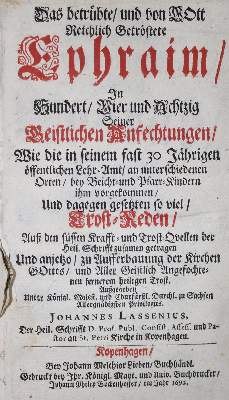 Das betrübte/ und von GOtt
Reichlich Getröstete
Ephraim/
In
Hundert/ Vier und Achtzig
Seiner
Geistlichen Anfechtungen/
Wie die in seinem fast 30 Jährigen
öffentlichen Lehr-Amt/ an unterschiedenen
Orten/ bey Beicht- und Pfarr-Kindern
ihm vorgekommen/
Und dagegen gesetzten so viel/
Trost-Reden/
Auß den süssen Krafft- und Trost-Qvellen der
Heil. Schrifft zusamen getragen
Und anjetzo/ zu Aufferbauung der Kirchen
GOttes/ und Aller Geistlich Angefochte-
nen fernerem heiligen Trost.
JOHANNES LASSENIUS,
Der Heil. Schrifft D. Prof. Publ. Consist. Assess. und Pa-
stor an St. Petri Kirche in Kopenhagen.
Kopenhagen/
Bey Johann Melchior Lieben/ Buchhändl.
Gedruckt bey Ihr. Königl. Mayt. und Univ. Buchdrucker/
im Jahr 1692.